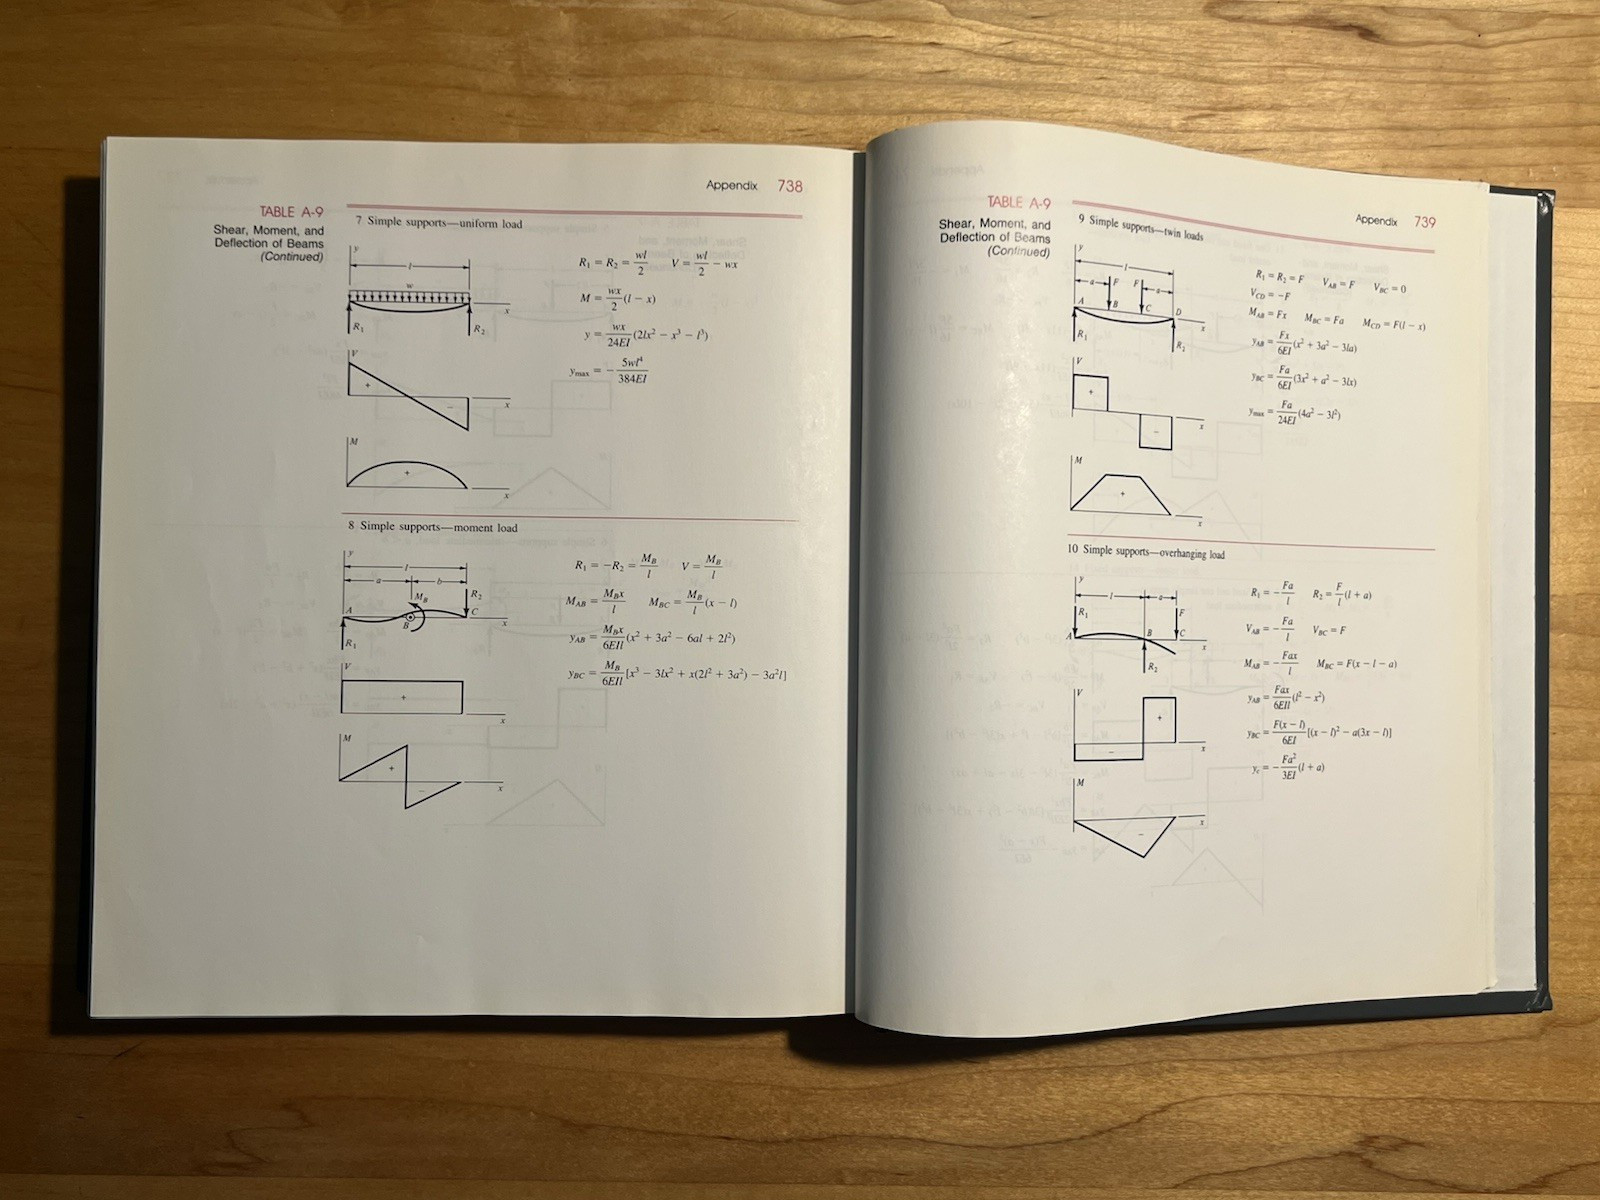 Appendix 738
TABLE A-9
Shear, Moment, and
Deflection of Beams
(Continued)
7 Simple supports—uniform load
y
l
w
x
R₁
R₂
R₁ = R₂ = wl/2 V = wl/2 − wx
M = wx/2 (l − x)
y = wx/24EI (2lx² − x³ − l³)
ymax = − 5wl⁴/384EI
V
+
−
x
M
+
x
8 Simple supports—moment load
y
l
a b
M_B
R₂
A
B
C
x
R₁
R₁ = −R₂ = M_B/l V = M_B/l
M_AB = M_Bx/l M_BC = M_B/l (x − l)
y_AB = M_Bx/6EIl (x² + 3a² − 6al + 2l²)
y_BC = M_B/6EIl [x³ − 3lx² + x(2l² + 3a²) − 3a²l]
V
+
x
M
+
−
x
Appendix 739
TABLE A-9
Shear, Moment, and
Deflection of Beams
(Continued)
9 Simple supports—twin loads
y
l
a F F a
A B C D
x
R₁
R₂
R₁ = R₂ = F V_AB = F V_BC = 0
V_CD = −F
M_AB = Fx M_BC = Fa M_CD = F(l − x)
y_AB = Fx/6EI (x² + 3a² − 3la)
y_BC = Fa/6EI (3x² + a² − 3lx)
ymax = Fa/24EI (4a² − 3l²)
V
+
−
x
M
+
x
10 Simple supports—overhanging load
y
l a
R₁ F
A B C
x
R₂
R₁ = − Fa/l R₂ = F/l (l + a)
V_AB = − Fa/l V_BC = F
M_AB = − Fax/l M_BC = F(x − l − a)
y_AB = Fax/6EIl (l² − x²)
y_BC = F(x − l)/6EI [(x − l)² − a(3x − l)]
y_c = − Fa²/3EI (l + a)
V
+
−
x
M
−
x